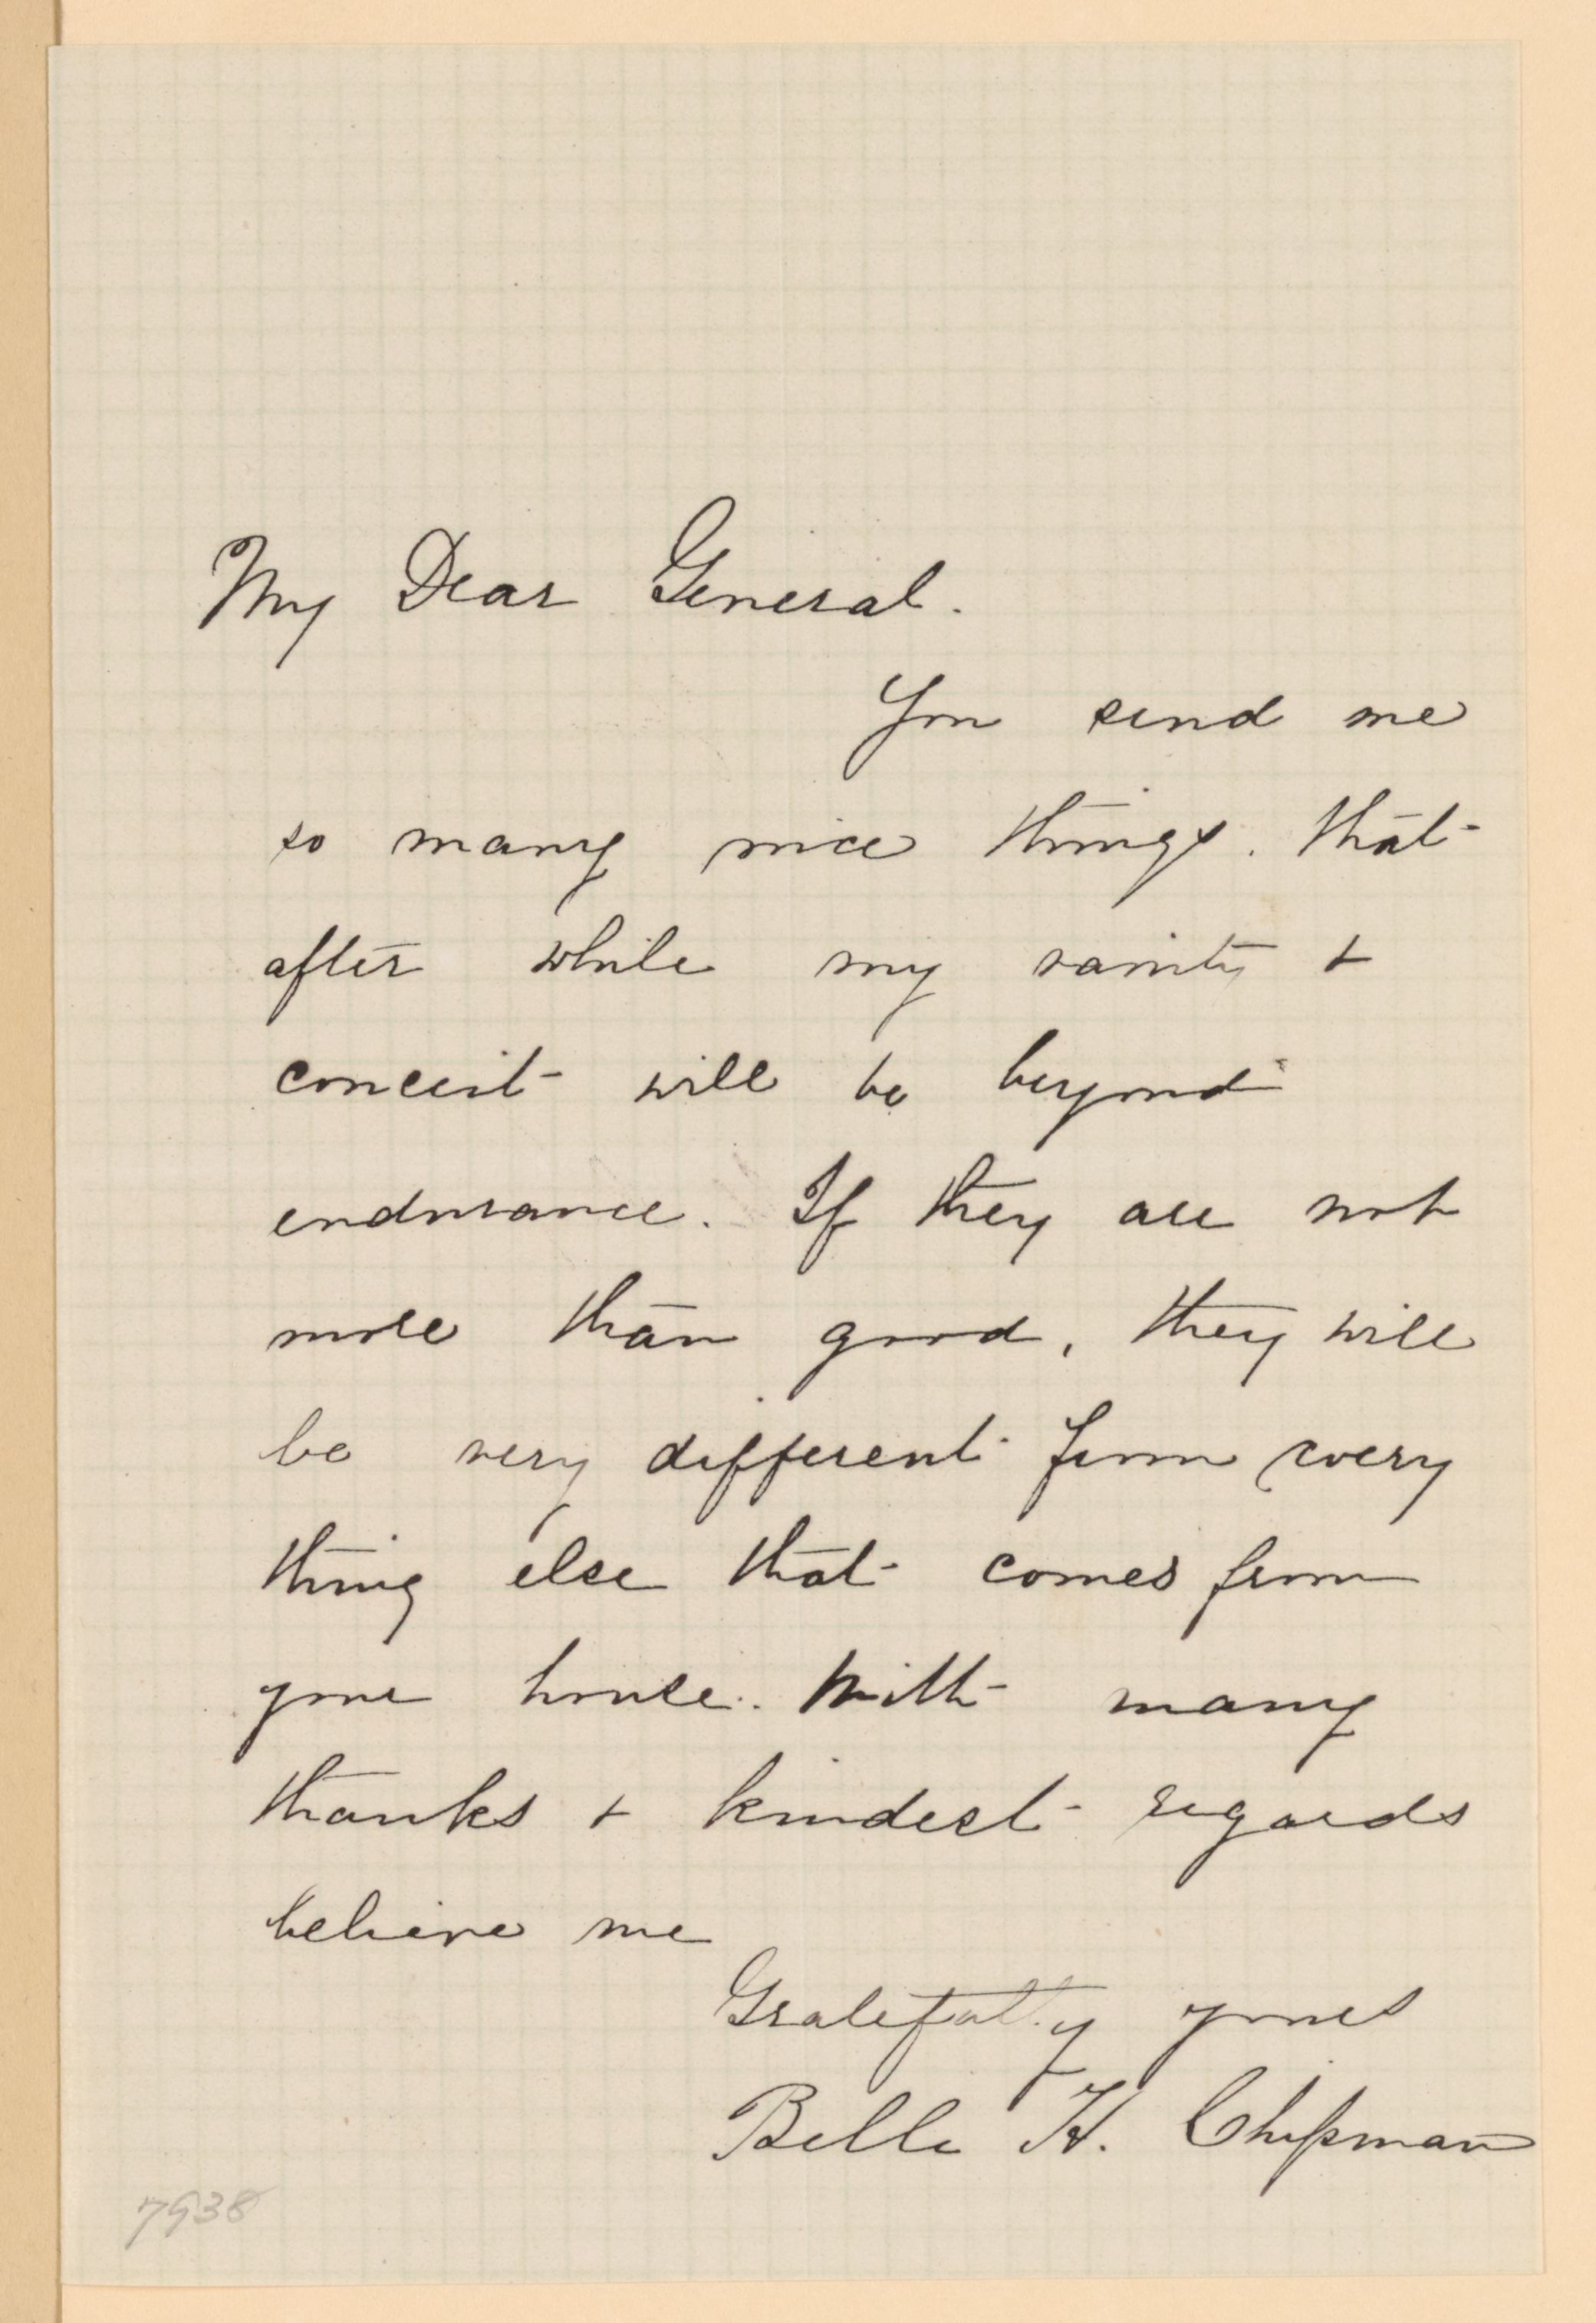 My Dear General.
You send me
so many nice things. that
after while my vanity +
conceit will be beyond
endurance. If they are not
more than good, they will
be very different from every
thing else that comes from
your house. With many
thanks + kindest regards
believe me
Gratefully yours
Belle H. Chipman
7938